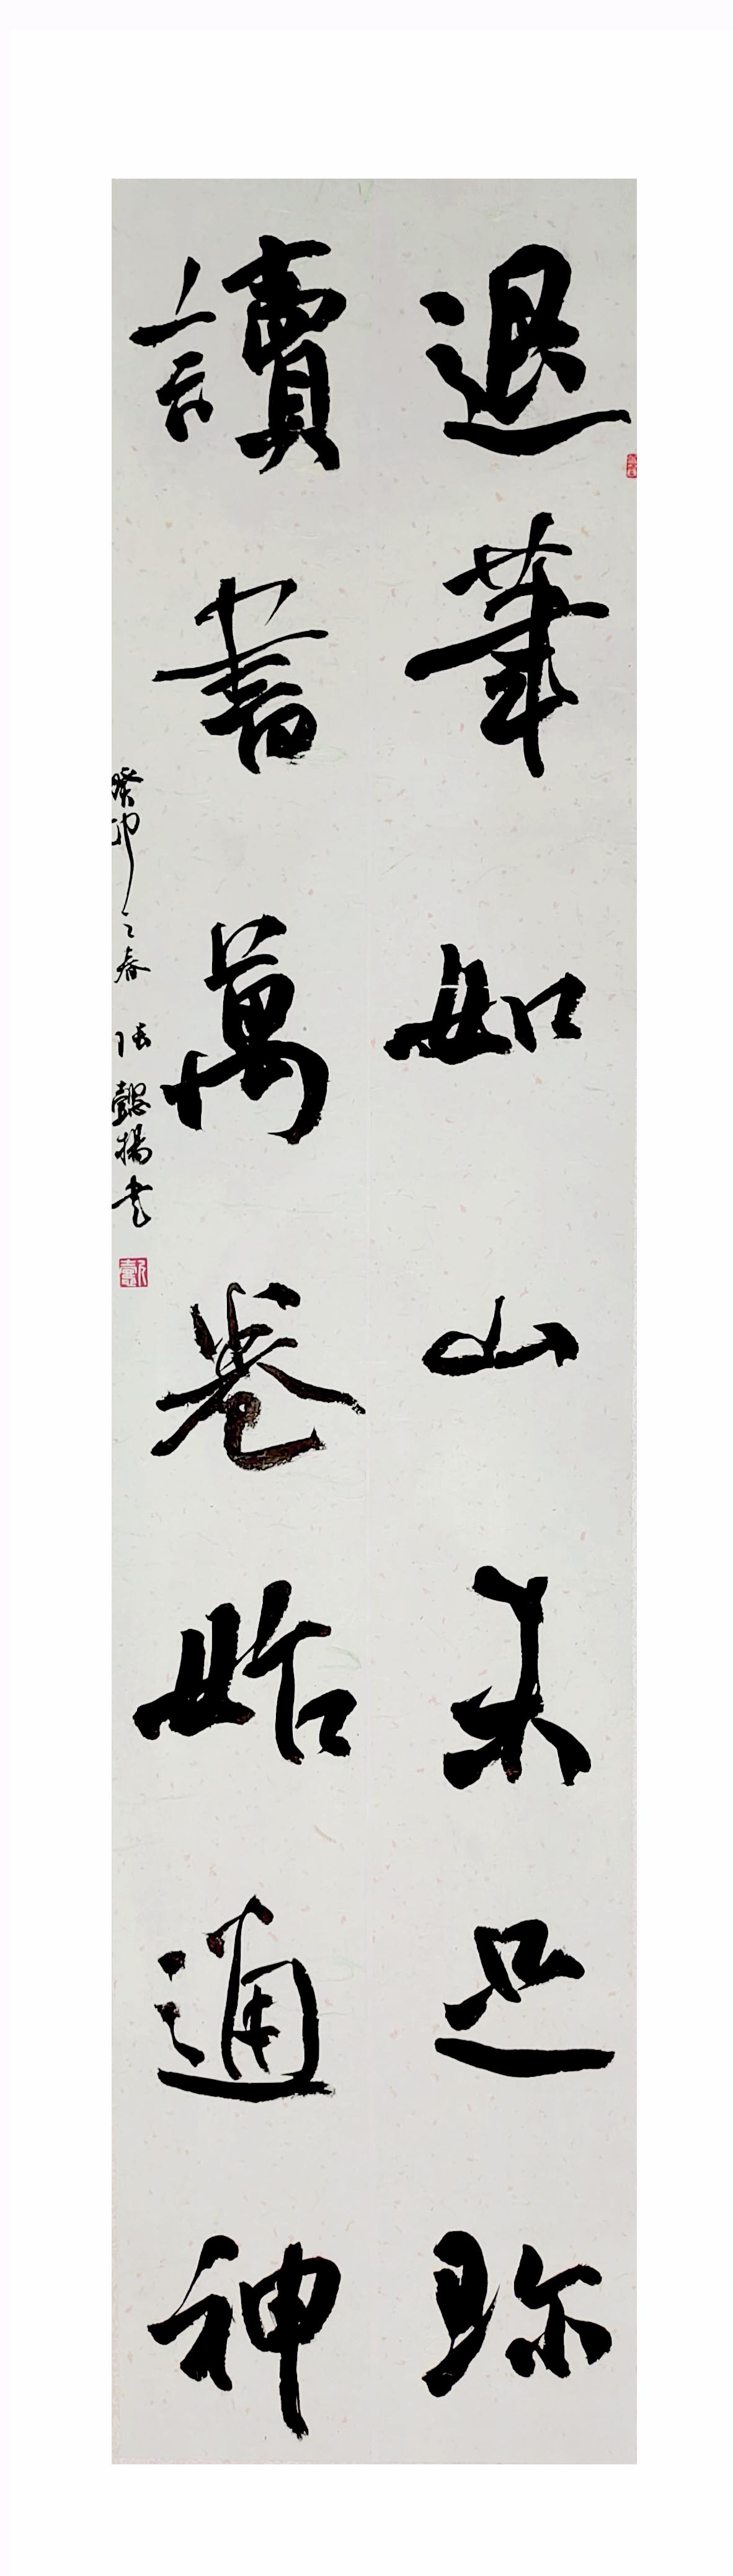 退筆如山未足珎
讀書萬卷始通神
癸卯之春 張懿揚書